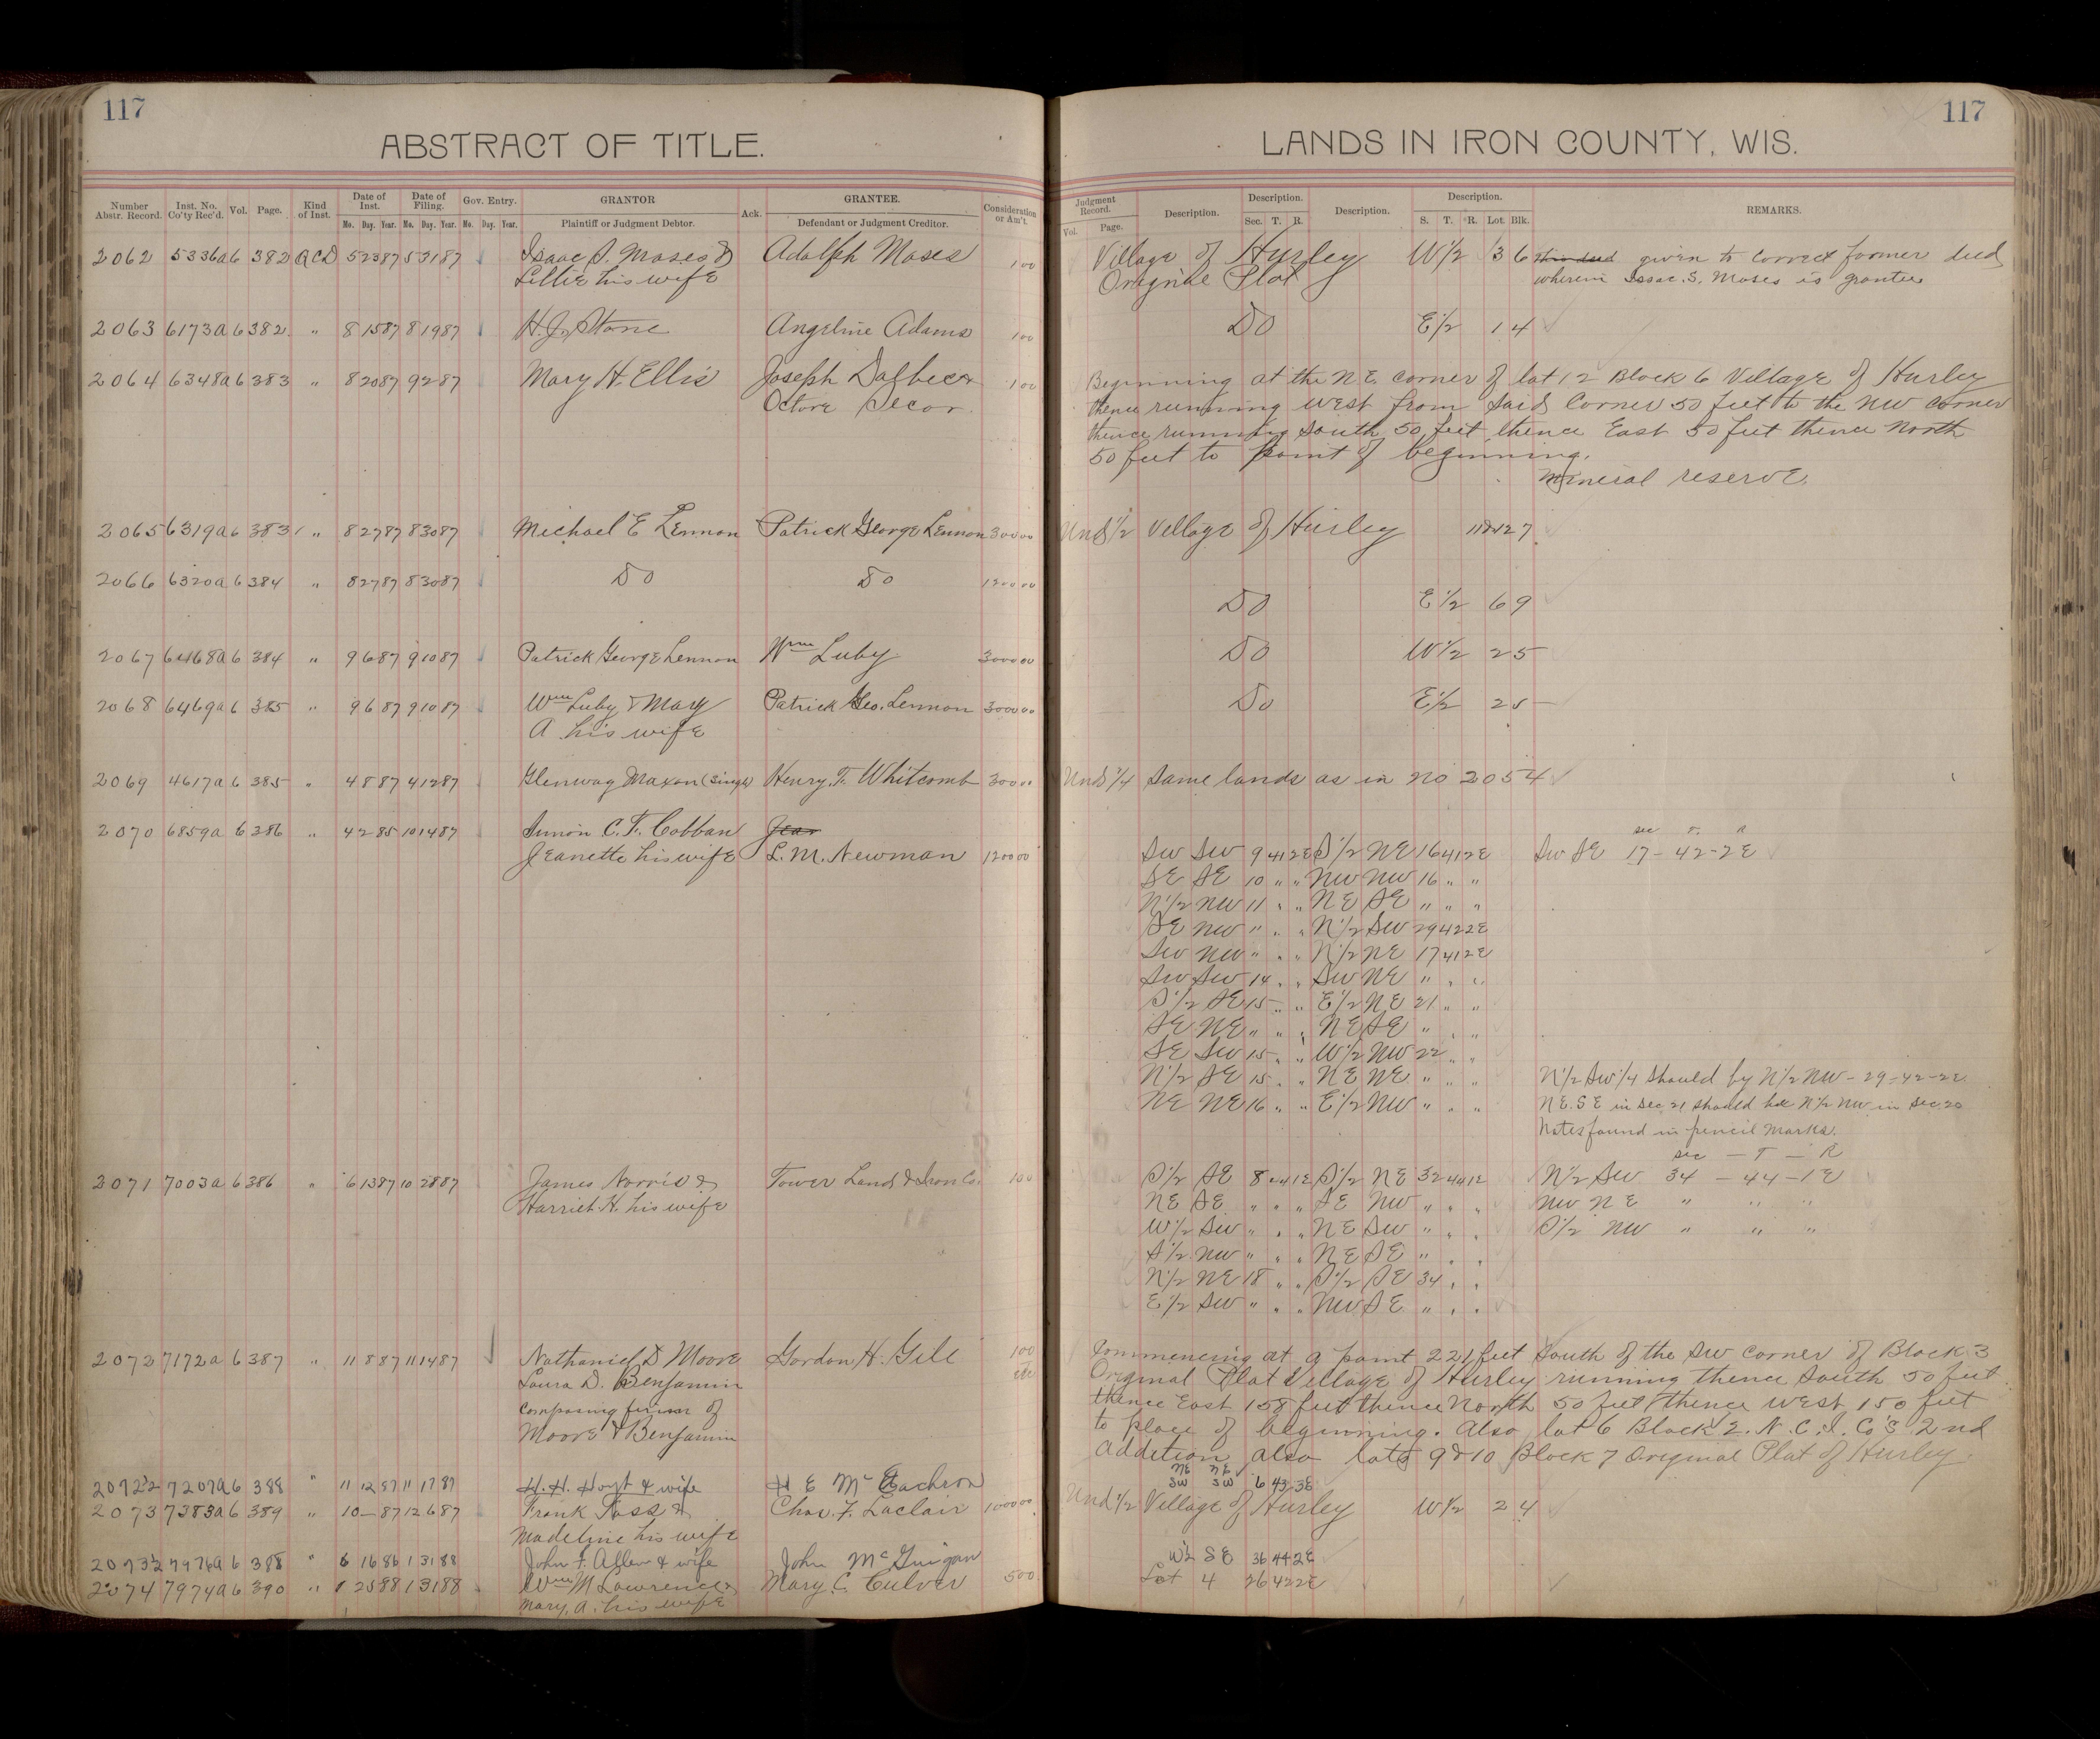 117
ABSTRACT OF TITLE.
Number Abstr. Record. Inst. No. Co'ty Rec'd. Vol. Page. Kind of Inst. Date of Inst. Mo. Day. Year. Date of Filing. Mo. Day. Year. Gov. Entry. Mo. Day. Year. GRANTOR Plaintiff or Judgment Debtor. Ack. GRANTEE. Defendant or Judgment Creditor. Consideration or Am't.
2062 5336a 6 382 QCD 5 23 87 5 31 87 Isaac S. Moses & Adolph Moses 1 00
Lillie his wife
2063 6173a 6 382 " 8 15 87 8 19 87 H. J. Stone Angeline Adams 1 00
2064 6348a 6 383 " 8 20 87 9 2 87 Mary H. Ellis Joseph Dalbec & 1 00
Octore Decor
2065 6319a 6 383 " 8 27 87 8 30 87 Michael E Lennon Patrick George Lennon 300 00
2066 6320a 6 384 " 8 27 87 8 30 87 Do Do 1200 00
2067 6468a 6 384 " 9 6 87 9 10 87 Patrick George Lennon Wm Luby 3000 00
2068 6469a 6 385 " 9 6 87 9 10 87 Wm Luby & Mary Patrick Geo. Lennon 3000 00
A his wife
2069 4617a 6 385 " 4 8 87 4 12 87 Glenway Maxon (Single) Henry. F. Whitcomb 300 00
2070 6859a 6 386 " 4 2 85 10 14 87 Simon C. F. Cobban
Jeanette his wife L. M. Newman 1200 00
2071 7003a 6 386 " 6 13 87 10 28 87 James Norris & Tower Land & Iron Co. 1 00
Harriet. H. his wife
2072 7172a 6 387 " 11 8 87 11 14 87 Nathaniel D Moore Gordon H. Gile 1 00
Laura D. Benjamin etc
Composing firm of
Moore & Benjamin
2072½ 7207a 6 388 " 11 12 87 11 17 87 H. H. Hoyt & wife H E McEachron
2073 7383a 6 389 " 10 — 87 12 6 87 Frank Foss & Chas. F. Laclair 1000 00
Madeline his wife
2073½ 7976a 6 388 " 6 16 86 1 31 88 John F. Allen & wife John McGuigan
2074 7974a 6 390 " 1 25 88 1 31 88 Wm M Lawrence & Mary C. Culver 500
Mary. A. his wife
117
LANDS IN IRON COUNTY, WIS.
Judgment Record. Vol. Page. Description. Description. Sec. T. R. Description. Description. S. T. R. Lot. Blk. REMARKS.
Village of Hurley W½ 3 6 given to correct former deed
Original Plat wherein Isaac. S. Moses is grantee
Do E½ 1 4
Beginning at the N.E. corner of lot 12 Block 6 Village of Hurley
thence running west from said Corner 50 feet to the NW corner
thence running South 50 feet thence East 50 feet thence North
50 feet to point of beginning.
Mineral reserve.
Und ½ Village of Hurley 11&12 7
Do E½ 6 9
Do W½ 2 5
Do E½ 2 5
Und ¾ Same lands as in No 2054
sec T. R
SW SW 9 41 2E S½ NE 16 41 2E SW SE 17 - 42 - 2E
SE SE 10 " " NW NW 16 " "
N½ NW 11 " " NE SE " " "
SE NW " " " N½ SW 29 42 2E
SW NW " " " N½ NE 17 41 2E
SW SW 14 " " SW NE " " "
S½ SE 15 " " E½ NE 21 " "
SE NE " " " NE SE " " "
SE SW 15 " " W½ NW 22 " "
N½ SE 15 " " NE NE " " " N½ SW¼ should by N½ NW - 29 - 42 - 2E
NE NE 16 " " E½ NW " " " N.E. S E in Sec 21 should be N½ NW in Sec 20
Notes found in pencil marks.
sec — T — R
S½ SE 8 44 1E S½ NE 32 44 1E N½ SW 34 - 44 - 1 E
NE SE " " " SE NW " " " NW N E " " "
W½ SW " " " NE SW " " " S½ NW " " "
S½ NW " " " NE SE " " "
N½ NE 18 " " S½ SE 34 " "
E½ SW " " " NW SE " " "
Commencing at a point 221 feet South of the SW corner of Block 3
Original Plat Village of Hurley running thence South 50 feet
thence East 158 feet thence North 50 feet thence west 150 feet
to place of beginning. Also lot 6 Block 2. N. C. I. Co's 2nd
addition also lots 9 & 10 Block 7 Original Plat of Hurley
NE NE
SW SW 6 43 3E
Und ½ Village of Hurley W½ 2 4
W½ SE 36 44 2E
Lot 4 26 42 2E